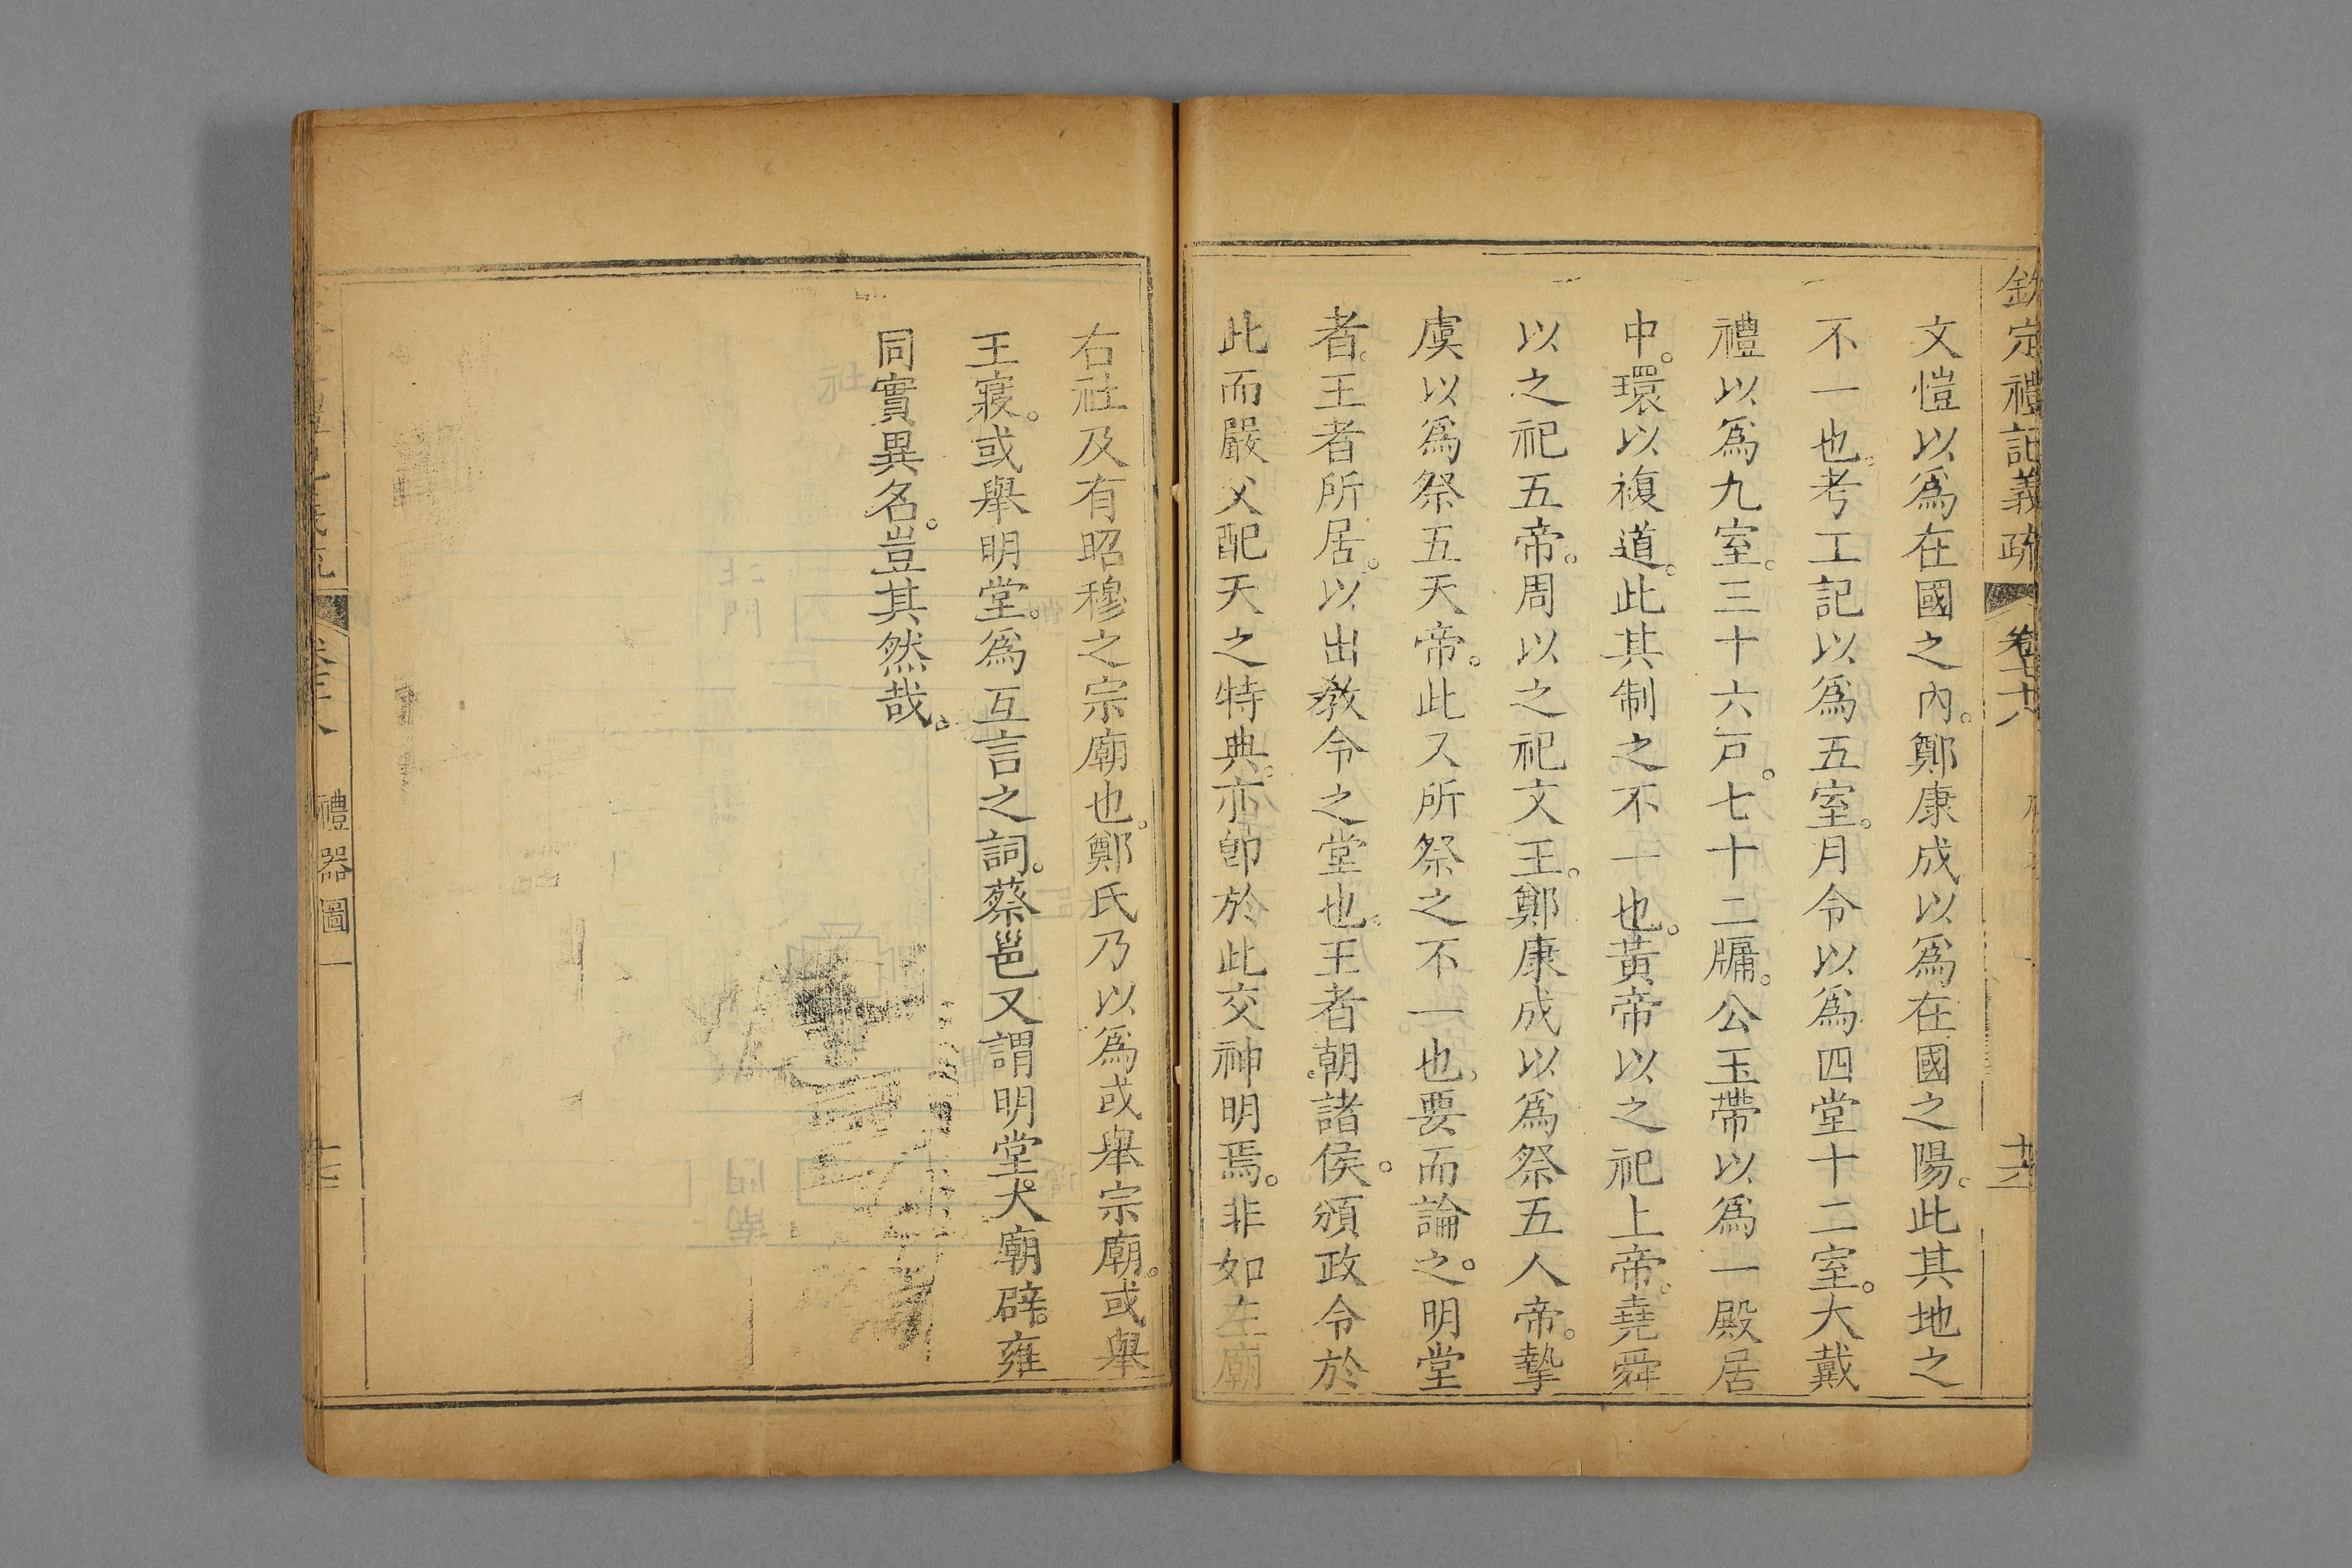 欽定禮記義疏 卷七十八
文愷以爲在國之內。鄭康成以爲在國之陽。此其地之
不一也。考工記以爲五室。月令以爲四堂十二室。大戴
禮以爲九室。三十六戸。七十二牖。公玉帶以爲一殿居
中。環以複道。此其制之不一也。黃帝以之祀上帝。堯舜
以之祀五帝。周以之祀文王。鄭康成以爲祭五人帝。摯
虞以爲祭五天帝。此又所祭之不一也。要而論之。明堂
者。王者所居。以出敎令之堂也。王者朝諸侯。頒政令於
此而嚴父配天之特典。亦卽於此交神明焉。非如左廟
右社及有昭穆之宗廟也。鄭氏乃以爲或舉宗廟。或舉
王寢。或舉明堂。爲互言之詞。蔡邕又謂明堂。大廟。辟雍
同實異名。豈其然哉。
禮器圖一